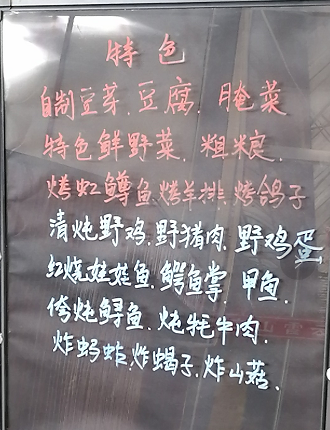 特色
自制豆芽、豆腐、腌菜
特色鲜野菜、粗粮、
烤虹鳟鱼、烤羊排、烤鸽子
清炖野鸡、野猪肉、野鸡蛋
红烧娃娃鱼、鳄鱼掌、甲鱼、
侉炖鲟鱼、炖牦牛肉、
炸蚂蚱、炸蝎子、炸山菇、